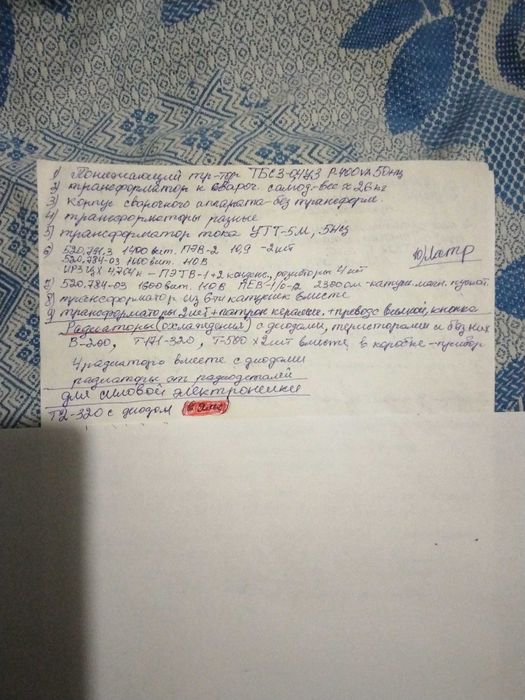 1) Понижающий тр-тор ТБСЗ-0,4УЗ Р-400VA 50Hz
2) трансформатор к свароч. самод-вес ≈ 26 кг
3) корпус сварочного аппарата-без трансформ.
4) трансформаторы разные
5) трансформатор тока УТТ-5М,
6) 520.781,3 1400 вит. ПЭВ-2 -2 шт
520.784-03 1600 вит. 110 В
4,764 н - ПЭТВ-1 + 2 резисторы 4 шт
10) Латр
7) 520.784-03 1600 вит. 110 В ПЕВ-1/0-2 2300 ом
8) трансформатор из 6ти катушек вместе
9) трансформаторы 2 шт + патрон + кнопка
Радиаторы (охлаждения) с диодами, тиристорами и без них
В-200, Т-171-320, Т-500 х 2 шт вместе в коробке-прибор
4 радиатора вместе с диодами
радиаторы от радиодеталей
для силовой электроники
Т2-320 с диодом